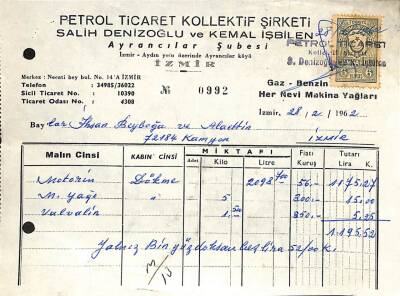 PETROL TİCARET KOLLEKTİF ŞİRKETİ
SALİH DENİZOĞLU ve KEMAL İŞBİLEN
Ayrancılar Şubesi
İzmir - Aydın yolu üzerinde Ayrancılar köyü
İZMİR
PETROL TİCARET
S. Denizoğlu
Merkez : Necati bey bul. No. 14/A İZMİR
Telefon : 34985/36022
Sicil Ticaret No. : 10390
Ticaret Odası No. : 4308
№ 0992
Gaz - Benzin
Her Nevi Makina Yağları
İzmir, 28/2/1962
Bay lar, İhsan Beyboğa ve Alaettin
72184 Kamyon İzmir
Malın Cinsi KABIN CİNSİ MİKTAFI Fiatı Tutarı
Adet Kilo Litre Kuruş Lira K.
Motorin Dökme 2098.70 56,- 1175.27
M. yağı " 5 300,- 15,00
Valvalin 1,50 350,- 5,25
1195,52
Yalnız Bin yüz doksan beş lira 52/00 K.